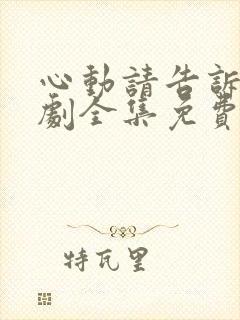 心動請告訴
劇全集免費
特瓦里